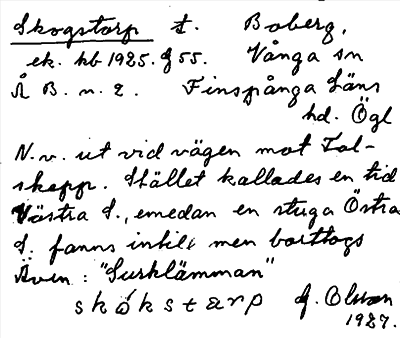 Skogstorp t. Boberg,
ek. kb 1925. f 55. Vånga sn
Å B. n. 2. Finspånga Läns
hd. Ögl
N.v. ut vid vägen mot Fal-
skepp. Stället kallades en tid
Västra S., emedan en stuga Östra
S. fanns intill men borttogs
Även: "Surklämman"
skókstarp G. Olsson
1927.